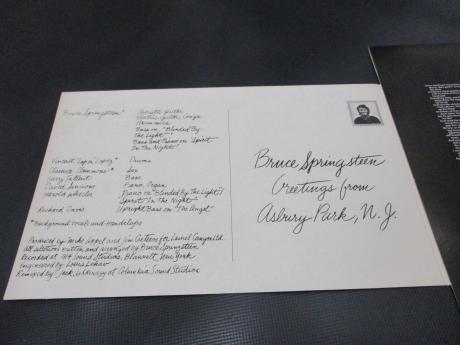 Bruce Springsteen*
Acoustic Guitar
Electric Guitar, Congas
Harmonica
Bass on "Blinded By
The Light"
Bass and Piano on "Spirit
In The Night"
Vincent Lopez*
Drums
Clarence Clemons*
Sax
Garry Tallent
Bass
David Sancious
Piano, Organ
Harold Wheeler
Piano on "Blinded By The Light"
Spirit In The Night"
Richard Davis
Upright Bass on "The Angel"
*Background vocals and Handclaps
Produced by Mike Appel and Jim Cretecos for Laurel Canyon Ltd.
All selections written and arranged by Bruce Springsteen
Recorded at 914 Sound Studios, Blauvelt, New York
Engineered by Louis Lahav
Remixed by Jack at Columbia Sound Studios
Bruce Springsteen
Greetings from
Asbury Park, N.J.